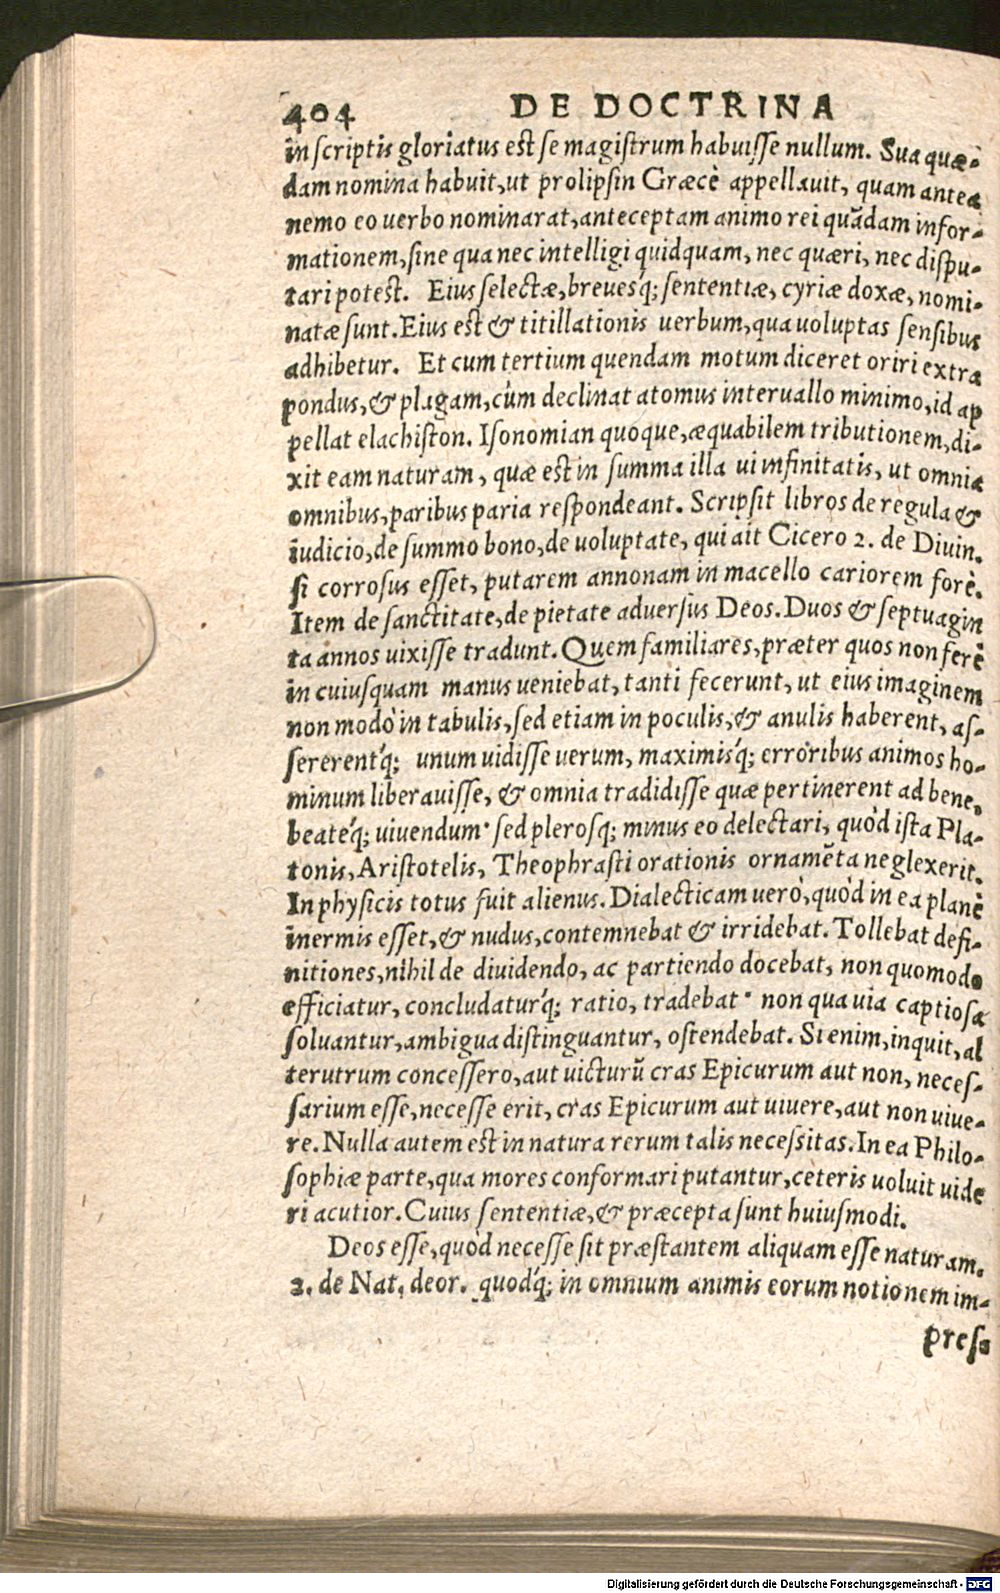 404 DE DOCTRINA
in scriptis gloriatus est se magistrum habuisse nullum. Sua quæ-
dam nomina habuit, ut prolipsin Græcè appellauit, quam antea
nemo eo uerbo nominarat, anteceptam animo rei quãdam infor-
mationem, sine qua nec intelligi quidquam, nec quæri, nec dispu-
tari potest. Eius selectæ, breuesq́; sententiæ, cyriæ doxæ, nomi-
natæ sunt. Eius est & titillationis uerbum, qua uoluptas sensibus
adhibetur. Et cum tertium quendam motum diceret oriri extra
pondus, & plagam, cùm declinat atomus interuallo minimo, id ap
pellat elachiston. Isonomian quoque, æquabilem tributionem, di-
xit eam naturam, quæ est in summa illa ui infinitatis, ut omnia
omnibus, paribus paria respondeant. Scripsit libros de regula &
iudicio, de summo bono, de uoluptate, qui ait Cicero 2. de Diuin.
si corrosus esset, putarem annonam in macello cariorem forè.
Item de sanctitate, de pietate aduersus Deos. Duos & septuagin
ta annos uixisse tradunt. Quem familiares, præter quos non ferè
in cuiusquam manus ueniebat, tanti fecerunt, ut eius imaginem
non modò in tabulis, sed etiam in poculis, & anulis haberent, as-
sererentq́; unum uidisse uerum, maximisq́; erroribus animos ho-
minum liberauisse, & omnia tradidisse quæ pertinerent ad bene,
beateq́; uiuendum· sed plerosq; minus eo delectari, quòd ista Pla-
tonis, Aristotelis, Theophrasti orationis ornamēta neglexerit.
In physicis totus fuit alienus. Dialecticam uerò, quòd in ea planè
inermis esset, & nudus, contemnebat & irridebat. Tollebat defi-
nitiones, nihil de diuidendo, ac partiendo docebat, non quomodo
efficiatur, concludaturq́; ratio, tradebat· non qua uia captiosa
soluantur, ambigua distinguantur, ostendebat. Si enim, inquit, al
terutrum concessero, aut uicturũ cras Epicurum aut non, neces-
sarium esse, necesse erit, cras Epicurum aut uiuere, aut non uiue-
re. Nulla autem est in natura rerum talis necessitas. In ea Philo-
sophiæ parte, qua mores conformari putantur, ceteris uoluit uide
ri acutior. Cuius sententiæ, & præcepta sunt huiusmodi.
Deos esse, quòd necesse sit præstantem aliquam esse naturam.
2. de Nat. deor. quodq́; in omnium animis eorum notionem im-
pres-
Digitalisierung gefördert durch die Deutsche Forschungsgemeinschaft - DFG